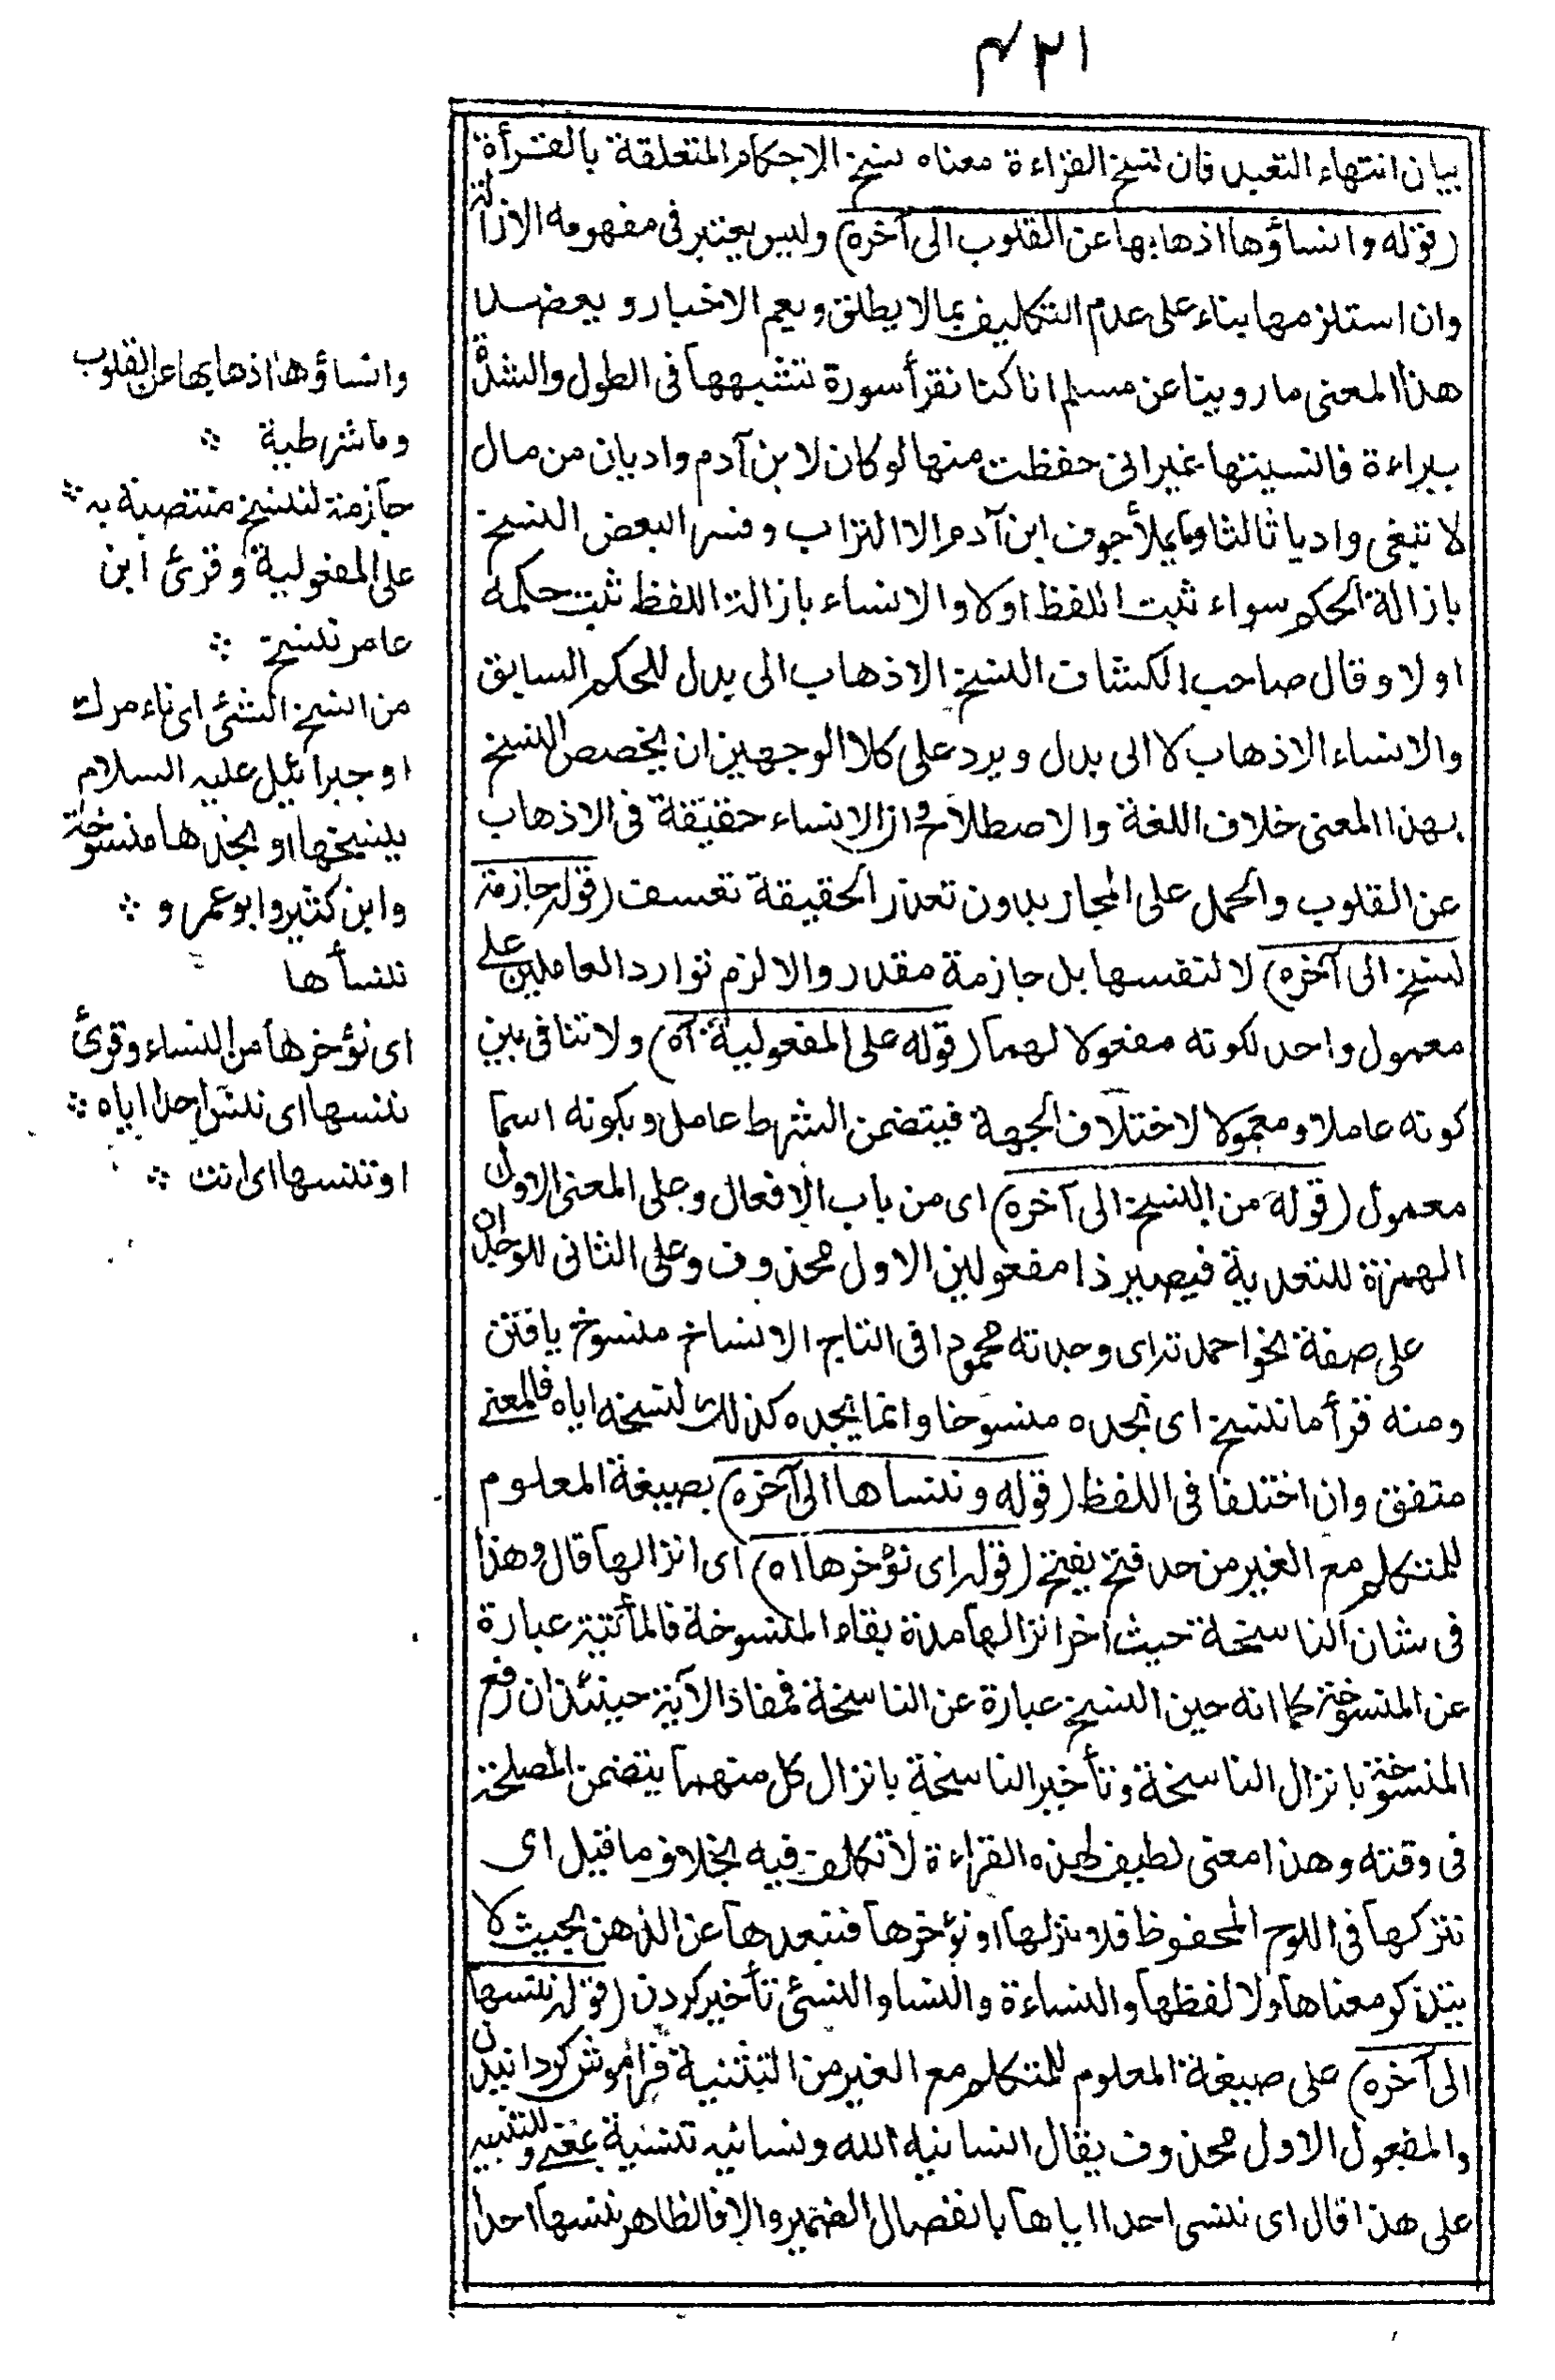 ۴۲۱
بيان انتهاء التعبد فان نسخ القراءة معناه نسخ الاحكام المتعلقة بالقرأة
(قوله وانساؤها اذهابها عن القلوب الى آخره) وليس يعتبر فى مفهومه الازالة
وان استلزمها بناء على عدم التكليف بما لا يطلق ويعم الاخبار و يعضد
هذا المعنى ما روينا عن مسلم انا كنا نقرأ سورة نشبهها فى الطول والشدة
ببراءة فانسيتها غير انى حفظت منها لو كان لابن آدم واديان من مال
لا تبغى واديا ثالثا وما يملأ جوف ابن آدم الا التراب وفسر البعض النسخ
بازالة الحكم سواء ثبت اللفظ اولا والانساء بازالة اللفظ ثبت حكمه
اولا وقال صاحب الكشاف النسخ الاذهاب الى بدل للحكم السابق
والانساء الاذهاب لا الى بدل ويرد على كلا الوجهين ان يخصص النسخ
بهذا المعنى خلاف اللغة والاصطلاح وان الانساء حقيقة فى الاذهاب
عن القلوب والحمل على المجاز بدون تعذر الحقيقة تعسف (قوله جازمة
لننسخ الى آخره) لا لنفسها بل جازمة مقدر والا لزم توارد العاملين على
معمول واحد لكونه مفعولا لهما (قوله على المفعولية آه) ولا تنافى بين
كونه عاملا ومعمولا لاختلاف الجهة فبتضمن الشرط عامل وبكونه اسما
معمول (قوله من النسخ الى آخره) اى من باب الافعال وعلى المعنى الاول
الهمزة للتعدية فيصير ذا مفعولين الاول محذوف وعلى الثانى للوجدان
على صفة نحو احمدته اى وجدته محمودا فى التاج الانساخ منسوخ يافتن
ومنه قرأ ما ننسخ اى نجده منسوخا وانما يجده كذلك لنسخه اياه فالمعنى
متفق وان اختلفا فى اللفظ (قوله وننساها الى آخره) بصيغة المعلوم
للمتكلم مع الغير من حد فتح يفتح (قوله اى نؤخرها اه) اى انزالها قال وهذا
فى شان الناسخة حيث اخر انزالها مدة بقاء المنسوخة فالمأتية عبارة
عن المنسوخة كما انه حين النسخ عبارة عن الناسخة فمفاد الآية حينئذ ان رفع
المنسوخة بانزال الناسخة وتأخير الناسخة بانزال كل منهما يتضمن المصلحة
فى وقته وهذا معنى لطيف لهذه القراءة لا تكلف فيه بخلاف ما قيل اى
نتركها فى اللوح المحفوظ فلا ننزلها او نؤخرها فنبعدها عن الذهن بحيث لا
يتذكر معناها ولا لفظها والنساءة والنسا والنسئ تأخير كردن (قوله ننسها
الى آخره) على صيغة المعلوم للمتكلم مع الغير من التنسية فراموش كردانيدن
والمفعول الاول محذوف يقال انسانيه الله ونسانيه تنسية بمعنى وللتنبيه
على هذا قال اى ننسى احدا اياها بانفصال الضمير والا فالظاهر ننسها احدا
وانساؤها اذهابها عن القلوب
وما شرطية
جازمة لننسخ منتصبة به
على المفعولية وقرئ ابن
عامر ننسخ
من انسخ الشئ اى ناءمرك
او جبرائيل عليه السلام
بنسخها او نجدها منسوخة
وابن كثير وابو عمرو
ننسأها
اى نؤخرها من النساء وقرئ
ننسها اى ننس احدا اياه
او تنسها اى انت